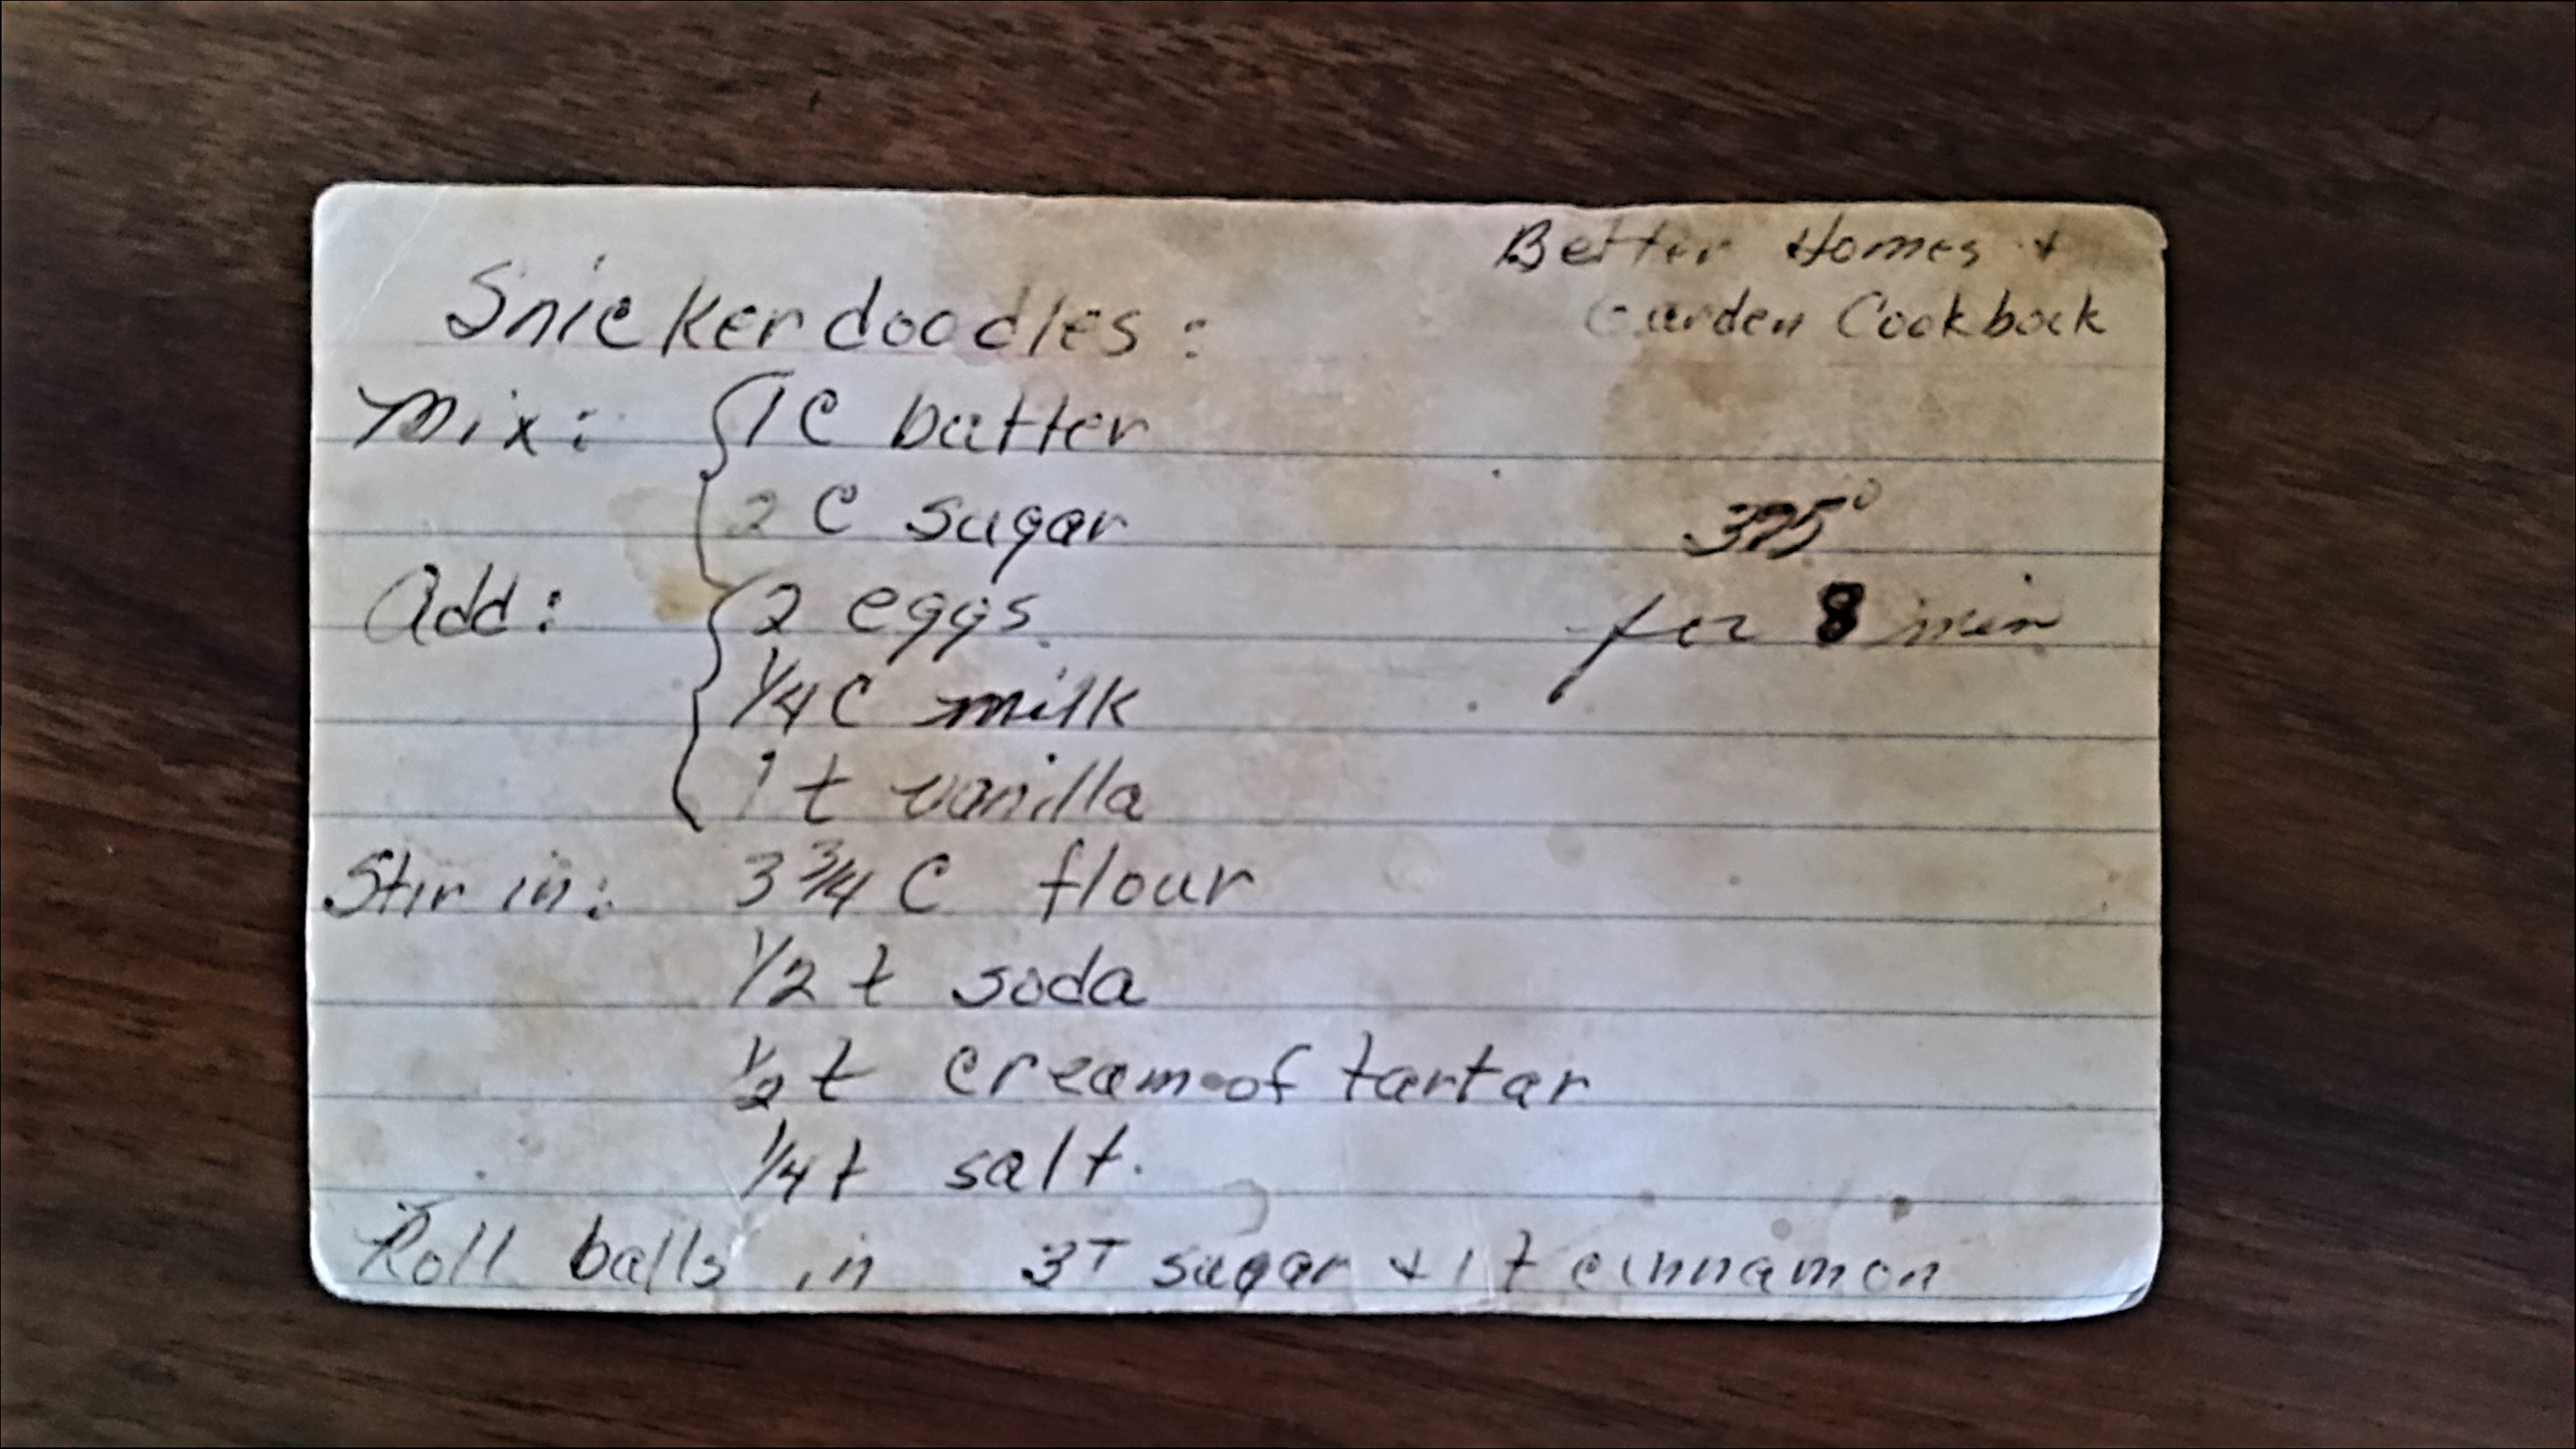 Better Homes +
Garden Cookbook
Snickerdoodles:
Mix: 1 C butter
2 C sugar
375°
Add: 2 eggs
for 8 min
1/4 C milk
1 t vanilla
Stir in: 3 3/4 C flour
1/2 t soda
1/2 t cream of tartar
1/4 t salt.
Roll balls in 3T sugar + 1 t cinnamon